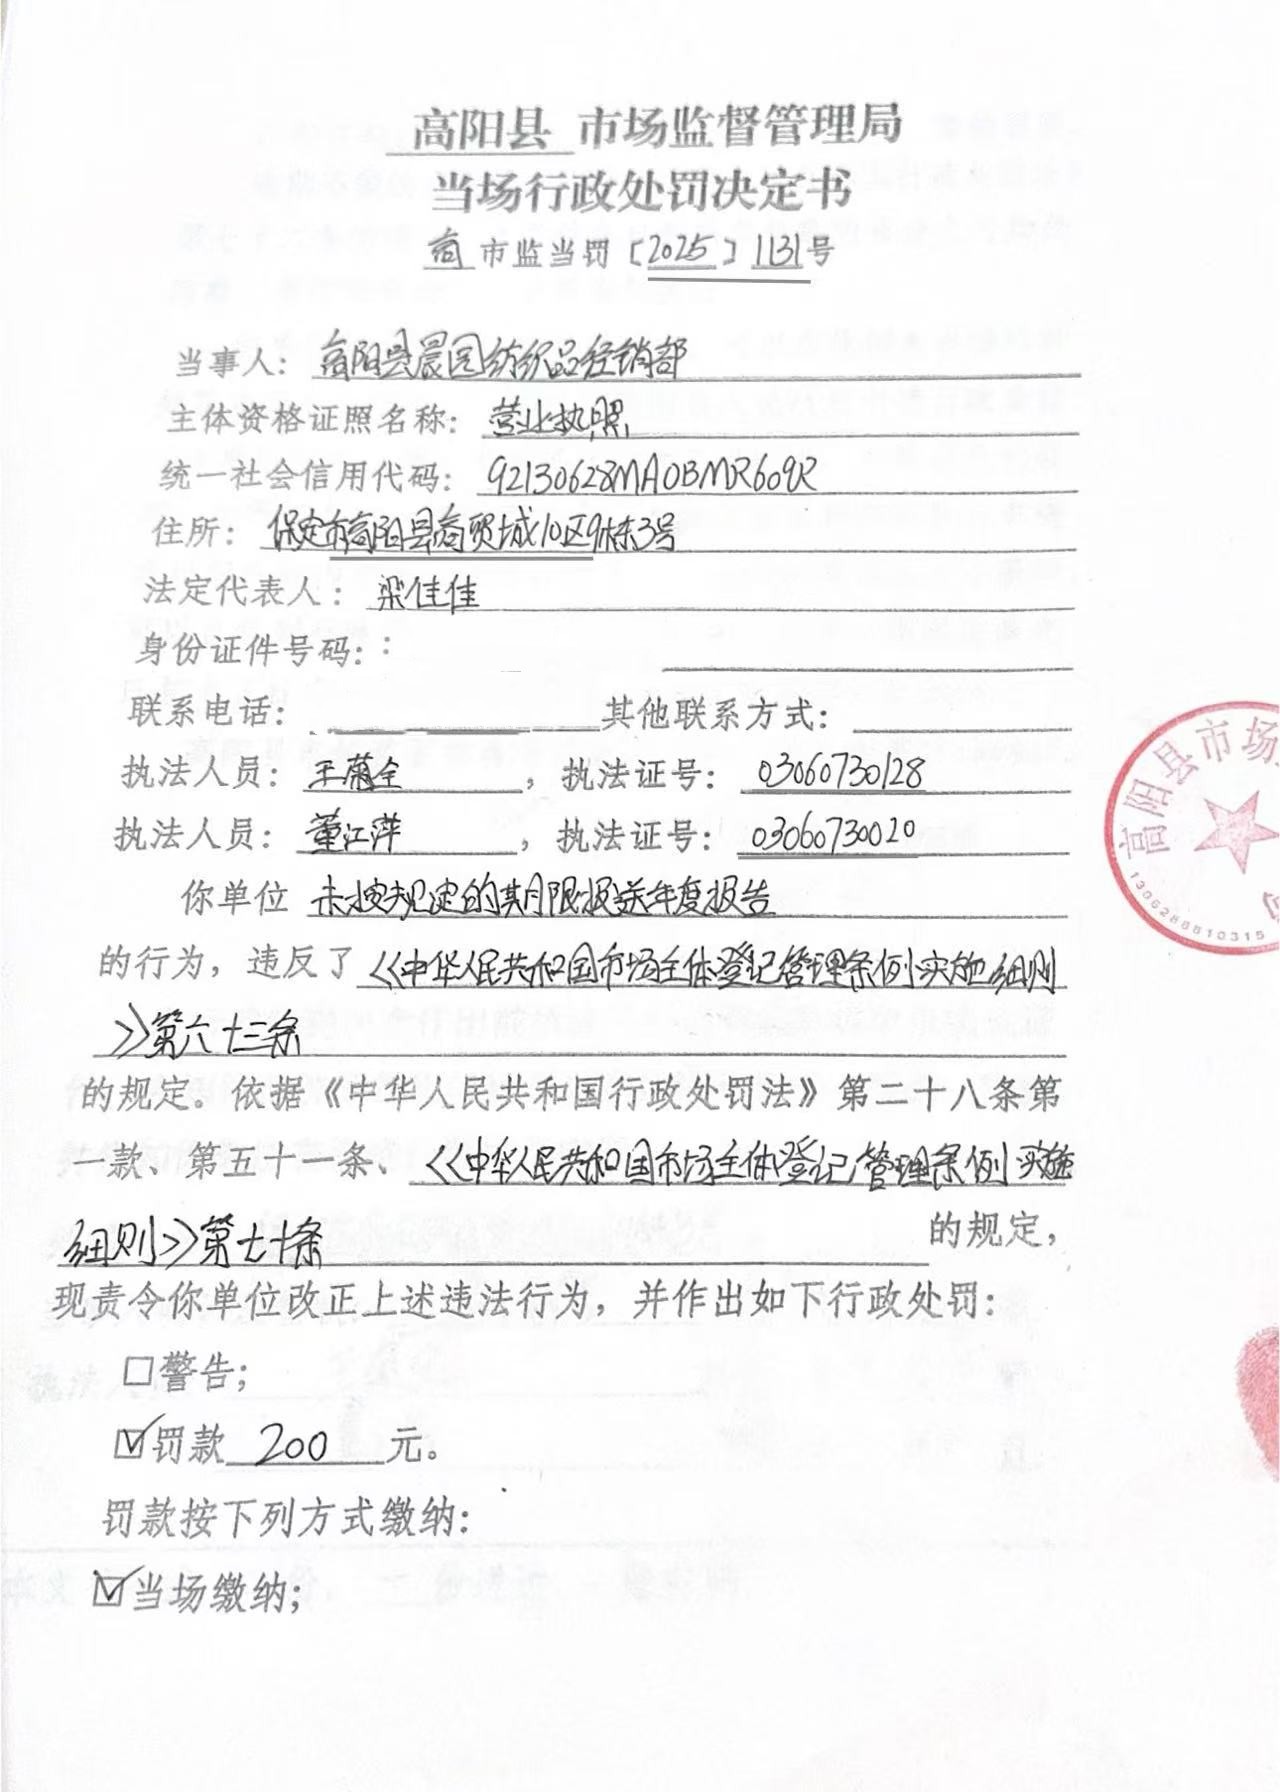 高阳县 市场监督管理局
当场行政处罚决定书
高市监当罚〔2025〕1131号
当事人：高阳县晨园纺织品经销部
主体资格证照名称：营业执照
统一社会信用代码：92130628MA0BMR609R
住所：保定市高阳县商贸城10区9栋3号
法定代表人：梁佳佳
身份证件号码：：
联系电话： 其他联系方式：
执法人员：王 全，执法证号：03060730128
执法人员：董江萍，执法证号：03060730020
你单位 未按规定的期限报送年度报告
的行为，违反了《中华人民共和国市场主体登记管理条例实施细则
》第六十三条
的规定。依据《中华人民共和国行政处罚法》第二十八条第
一款、第五十一条、《中华人民共和国市场主体登记管理条例实施
细则》第七十条 的规定，
现责令你单位改正上述违法行为，并作出如下行政处罚：
□警告；
☑罚款 200 元。
罚款按下列方式缴纳：
☑当场缴纳；
高阳县市场
1306288810315